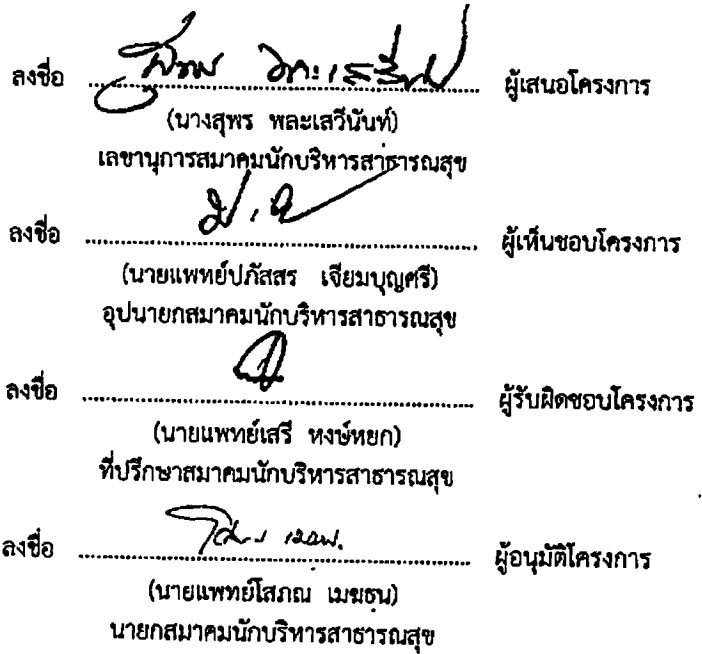 ลงชื่อ ........................................ ผู้เสนอโครงการ
(นางสุพร พละเสวีนันท์)
เลขานุการสมาคมนักบริหารสาธารณสุข
ลงชื่อ ........................................ ผู้เห็นชอบโครงการ
(นายแพทย์ปภัสสร เจียมบุญศรี)
อุปนายกสมาคมนักบริหารสาธารณสุข
ลงชื่อ ........................................ ผู้รับผิดชอบโครงการ
(นายแพทย์เสรี หงษ์หยก)
ที่ปรึกษาสมาคมนักบริหารสาธารณสุข
ลงชื่อ ........................................ ผู้อนุมัติโครงการ
(นายแพทย์โสภณ เมฆธน)
นายกสมาคมนักบริหารสาธารณสุข